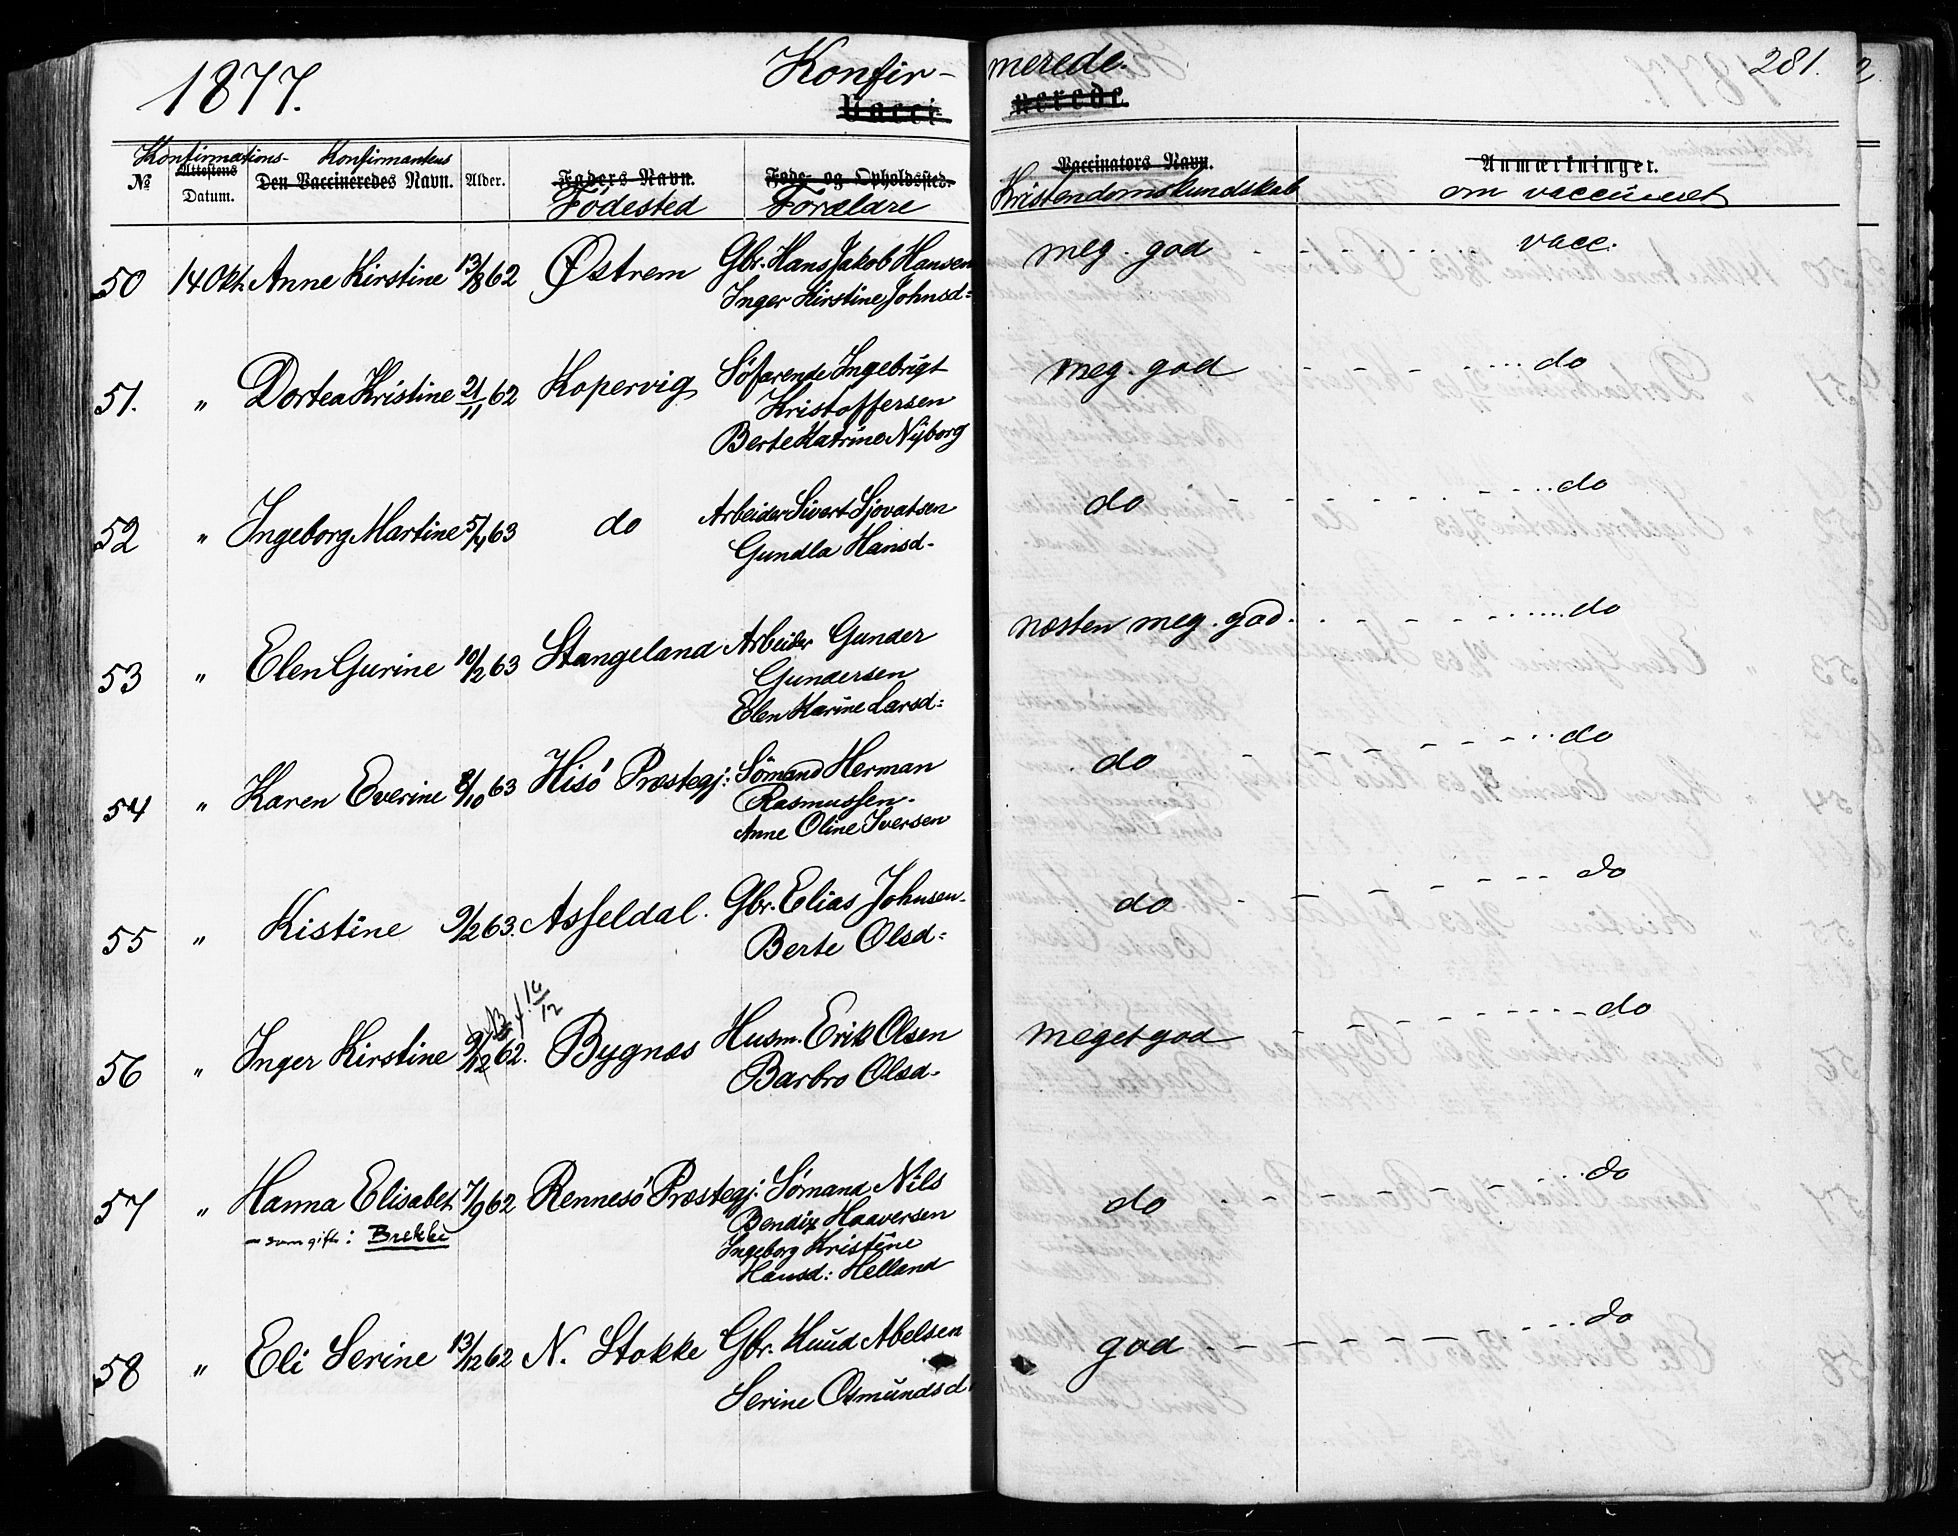 1877. Konfir- merede. 281.
Vacci- nerede.
Konfirmations- Konfirmantens
№ Attestens Datum. Den Vaccineredes Navn. Alder. Faders Navn. Føde- og Opholdssted. Vaccinators Navn. Anmærkninger.
Födested Forældre Kristendomskundskab om vaccineret
50 14 Okt. Anne Kirstine 13/8 62 Østrem Gbr. Hans Jakob Hansen meg. god vacc.
Inger Kirstine Johnsd:
51. " Dortea Kristine 21/11 62 Kopervig Söfarende Ingebrigt meg. god do
Kristoffersen
Berte Katrine Nyborg
52 " Ingeborg Martine 5/4 63 do Arbeider Sivert Sjovatsen do do
Gundla Hansd.
53 " Elen Gurine 10/2 63 Stangeland Arbeider Gunder næsten meg. god. do
Gundersen
Elen Karine Larsd:
54 " Karen Everine 8/10 63 Hisö Præstegj: Sömand Herman do do
Rasmussen.
Anne Oline Iversen
55 " Kistine 9/2 63. Asseldal. Gbr. Elias Johnsen. do do
Berte Olsd:
16/12
56 " Inger Kirstine 9/12 62. Bygnæs Husm. Erik Olsen meget god do
Barbro Olsd.
57 " Hanna Elisabet 7/9 62 Rennesö Præstegj: Sömand Nils do do
- som gift: Brekke Bendix Haaversen
Ingeborg Kristine
Hansd: Helland
58 " Eli Serine 13/12 62 N. Stokke Gbr. Knud Abelsen god do
Serine Osmundsd.